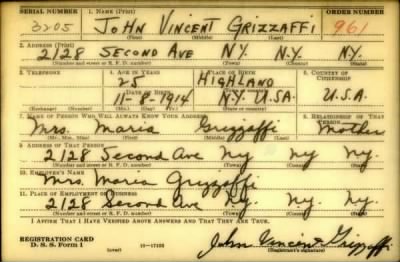 SERIAL NUMBER 1. NAME (Print) ORDER NUMBER
3205 JOHN VINCENT GRIZZAFFI 961
(First) (Middle) (Last)
2. ADDRESS (Print)
2128 SECOND AVE N.Y. N.Y. N.Y.
(Number and street or R. F. D. number) (Town) (County) (State)
3. TELEPHONE 4. AGE IN YEARS 5. PLACE OF BIRTH 6. COUNTRY OF CITIZENSHIP
25 HIGHLAND
DATE OF BIRTH
11-8-1914 N.Y. U.S.A. U.S.A.
(Exchange) (Number) (Mo.) (Day) (Yr.) (Town or county) (State or country)
7. NAME OF PERSON WHO WILL ALWAYS KNOW YOUR ADDRESS 8. RELATIONSHIP OF THAT PERSON
Mrs. Maria Grizzaffi Mother
(Mr., Mrs., Miss) (First) (Middle) (Last)
9. ADDRESS OF THAT PERSON
2128 Second Ave Ny. ny ny.
(Number and street or R. F. D. number) (Town) (County) (State)
10. EMPLOYER'S NAME
Mrs. Maria Grizzaffi
11. PLACE OF EMPLOYMENT OR BUSINESS
2128 Second Ave Ny. Ny. Ny.
(Number and street or R. F. D. number) (Town) (County) (State)
I AFFIRM THAT I HAVE VERIFIED ABOVE ANSWERS AND THAT THEY ARE TRUE.
REGISTRATION CARD
D. S. S. Form 1 (over) 16-17105 John Vincent Grizzaffi
(Registrant's signature)